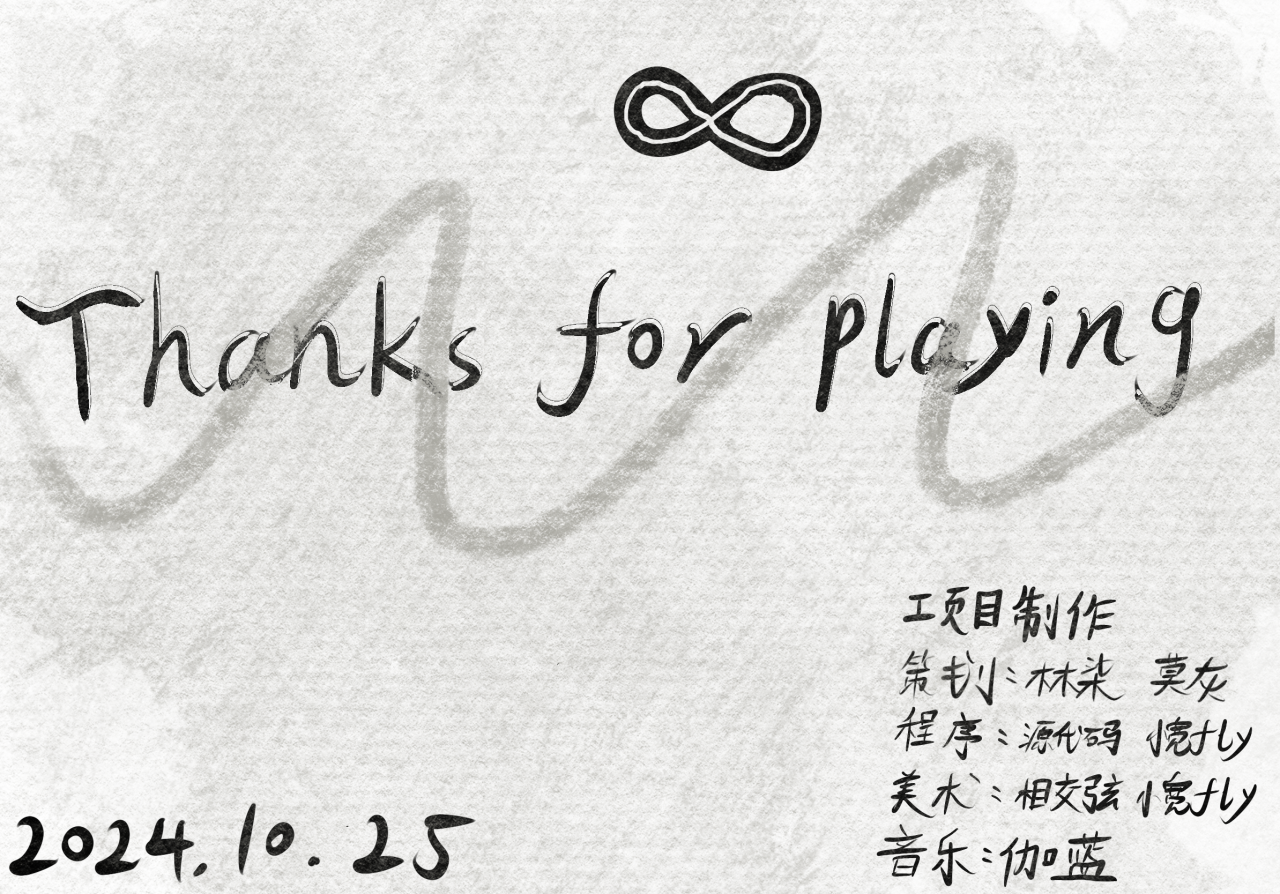 Thanks for playing
工项目制作
策划：林柒 莫灰
程序：源代码 fly
美术：相交弦 fly
音乐：伽蓝
2024.10.25